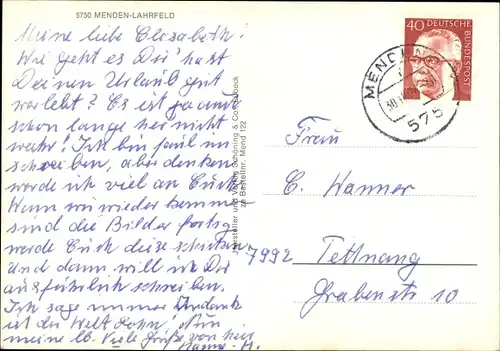 5750 MENDEN-LAHRFELD
Meine liebe Elisabeth!
Wie geht es Dir? hast
Deinen Urlaub gut
verlebt? Es ist ja auch
schon lange her nicht
wahr! Ich bin faul im
schreiben, aber denken
werde ich viel an Euch
Wenn wir wieder kommen
sind die Bilder fertig
werde Euch diese schicken
und dann will ich Dir
ausführlich schreiben.
Ich sage immer Undank
ist der Welt Lohn! Nun
meine lb. Viele Grüße von
Hersteller und Verlag Schöning & Co
zu Bestellnr. Mend 122
40 DEUTSCHE BUNDESPOST
MENDEN
575
Frau
C. Wanner
7992 Tettnang
Grabenstr 10